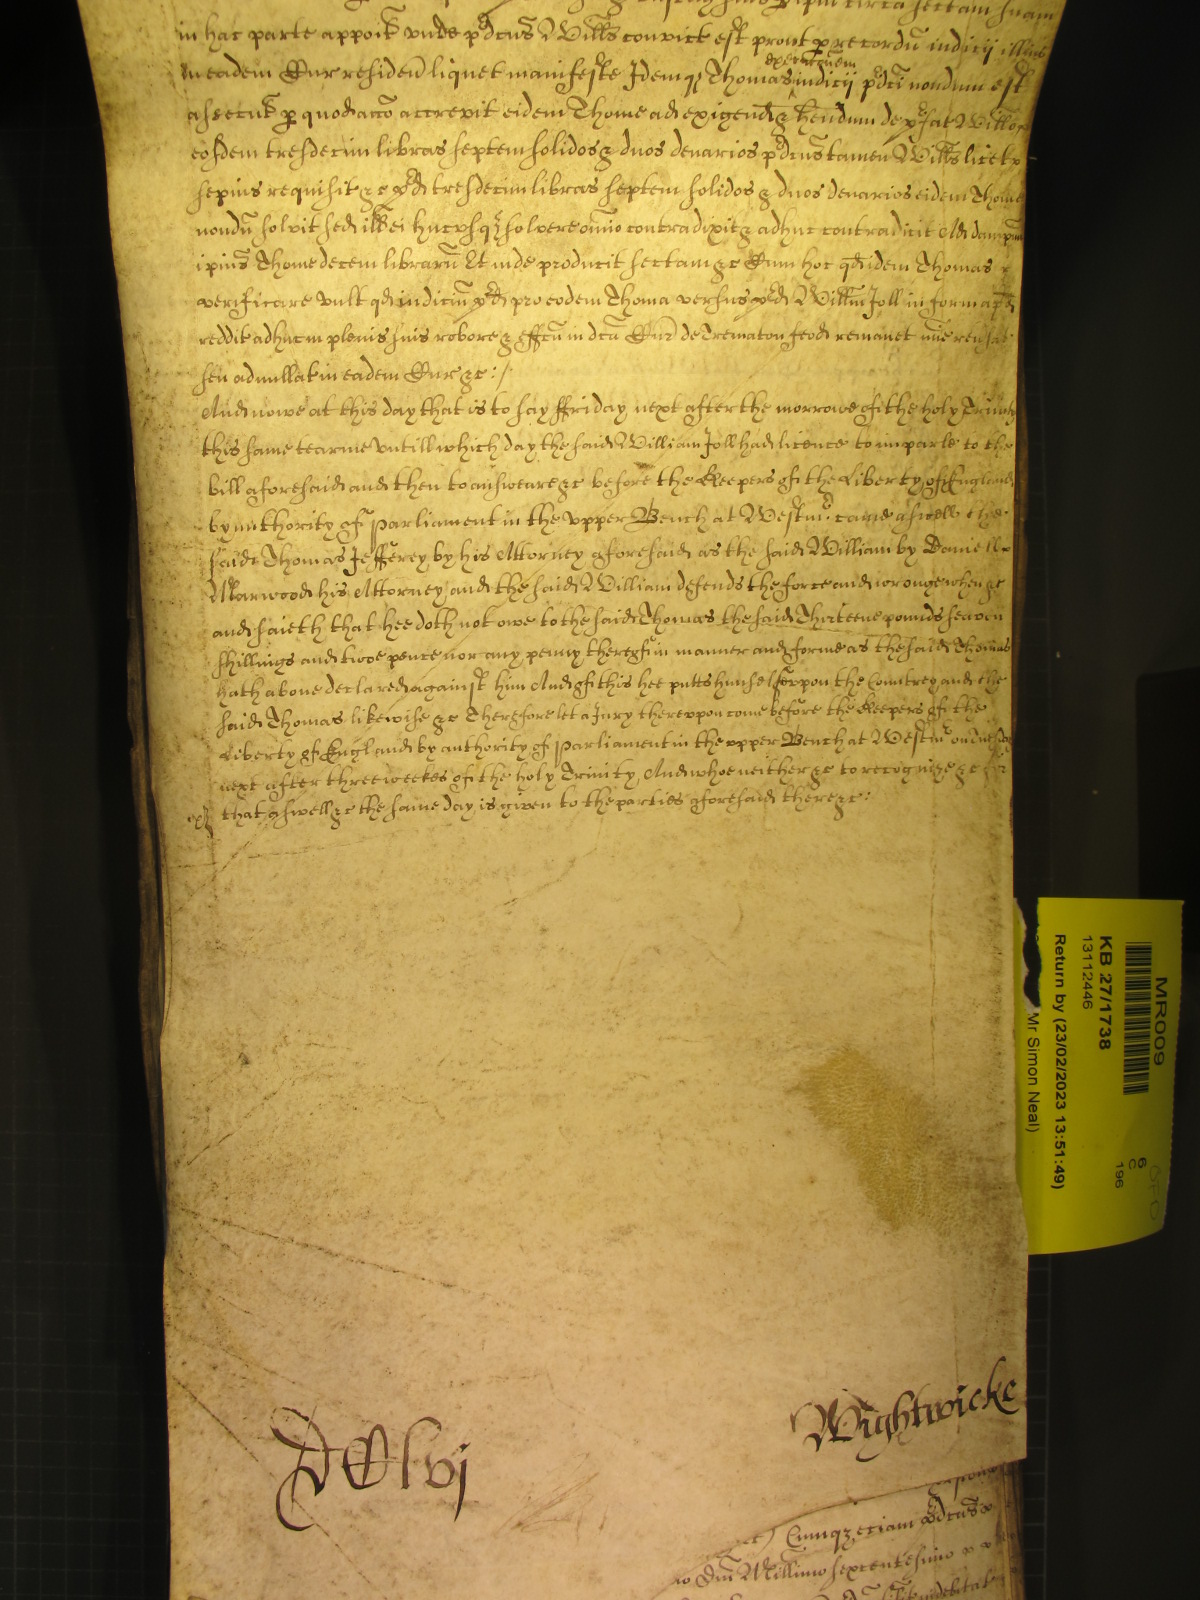 in hac parte apposit unde p̃dcus Willus convict est prout p recordu indicij illius
in eadem Cur residen liquet manifeste Idemq Thomas executionem indicij p̃dci nondum est
assecut p quod acco accrevit eidem Thome ad exigend & hendum de p̃fat Willo
eosdem tresdecim libras septem solidos & duos denarios p̃dcus tamen Willus licet
sepius requisit &c p̃d tresdecim libras septem solidos & duos denarios eidem Thome
nondu solvit sed ill ei hucusq solvere omnio contradixit & adhuc contradicit Ad dampnu
ipius Thome decem libraru Et inde producit sectam &c Cum hoc qd idem Thomas
verificare vult qd indiciu p̃d pro eodem Thoma versus p̃d Willm Joll in forma p̃d
reddit adhuc in plenis suis robore & effcu in dca Cur de Trematon feod remanet mie revsat
seu adnullat in eadem Cur &c :/
And nowe at this day that is to say ffriday next after the morrowe of the holy Trinity
this same tearme untill which day the said William Joll had licence to imparle to the
bill aforesaid and then to answeare &c before the Keepers of the Liberty of England
by authority of Parliament in the upper Bench at Westmr. came aswell the
said Thomas Jefferey by his Attorney aforesaid as the said William by Daniell
Marwood his Attorney and the said William defends the force and wronge when &c
and saieth that hee doth not owe to the said Thomas the said Thirteene pounds seaven
shillings and twoe pence nor any penny thereof in manner and forme as the said Thomas
hath above declared against him And of this hee putts himself uppon the Countrey and the
said Thomas likewise &c Therefore let a Jury thereupon come before the Keepers of the
Liberty of England by authority of Parliament in the upper Bench at Westmr on
next after three weekes of the holy Trinity, And whoe neither &c to recognize &c
that aswell &c the same day is given to the parties aforesaid there &c:
Wightwicke
DClvj
Cumqz eciam p̃dcus
Dni Millimo sexcentesimo
indebitat
MR009
KB 27/1738
13112446
Return by (23/02/2023 13:51:49)
Mr Simon Neal)
6
C
196